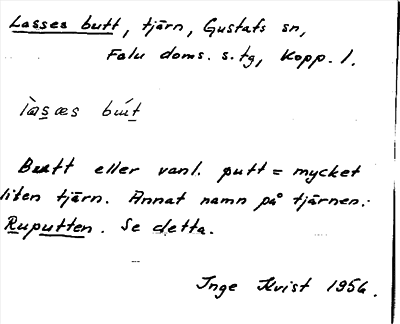 Lasses butt, tjärn, Gustafs sn,
Falu doms. s. tg, Kopp. l.
làsæs bút
Butt eller vanl. putt = mycket
liten tjärn. Annat namn på tjärnen:
Ruputten. Se detta.
Inge Kvist 1956.